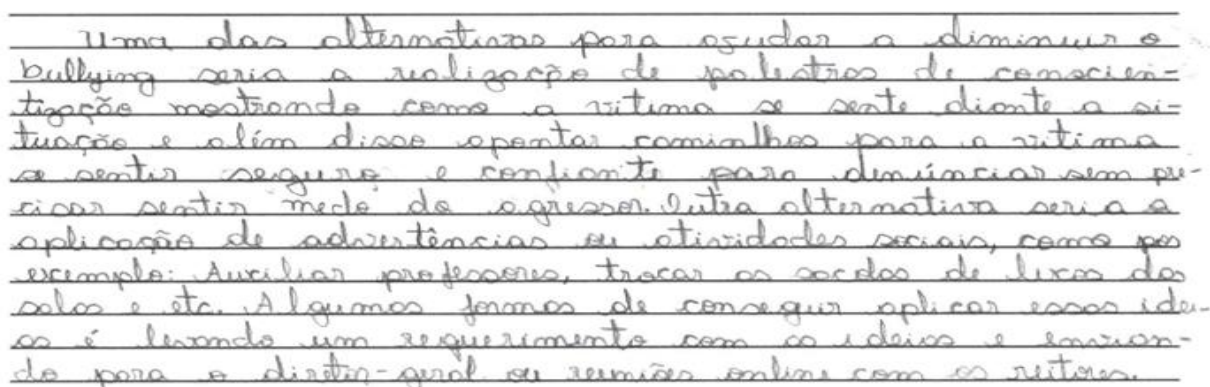 Uma das alternativas para ajudar a diminuir o
bullying seria a realização de palestras de conscien-
tização mostrando como a vitima se sente diante a si-
tuação e além disso apontar caminhos para a vitima
se sentir segura e confiante para denúnciar sem pre-
cisar sentir medo do agressor. Outra alternativa seria a
aplicação de advertências ou atividades sociais, como por
exemplo: Auxiliar professores, trocar os sacolas de lixos das
salas e etc. Algumas formas de conseguir aplicar essas idei-
as é levando um requerimento com as ideias e envian-
do para o diretor-geral ou reuniões online com os reitores.